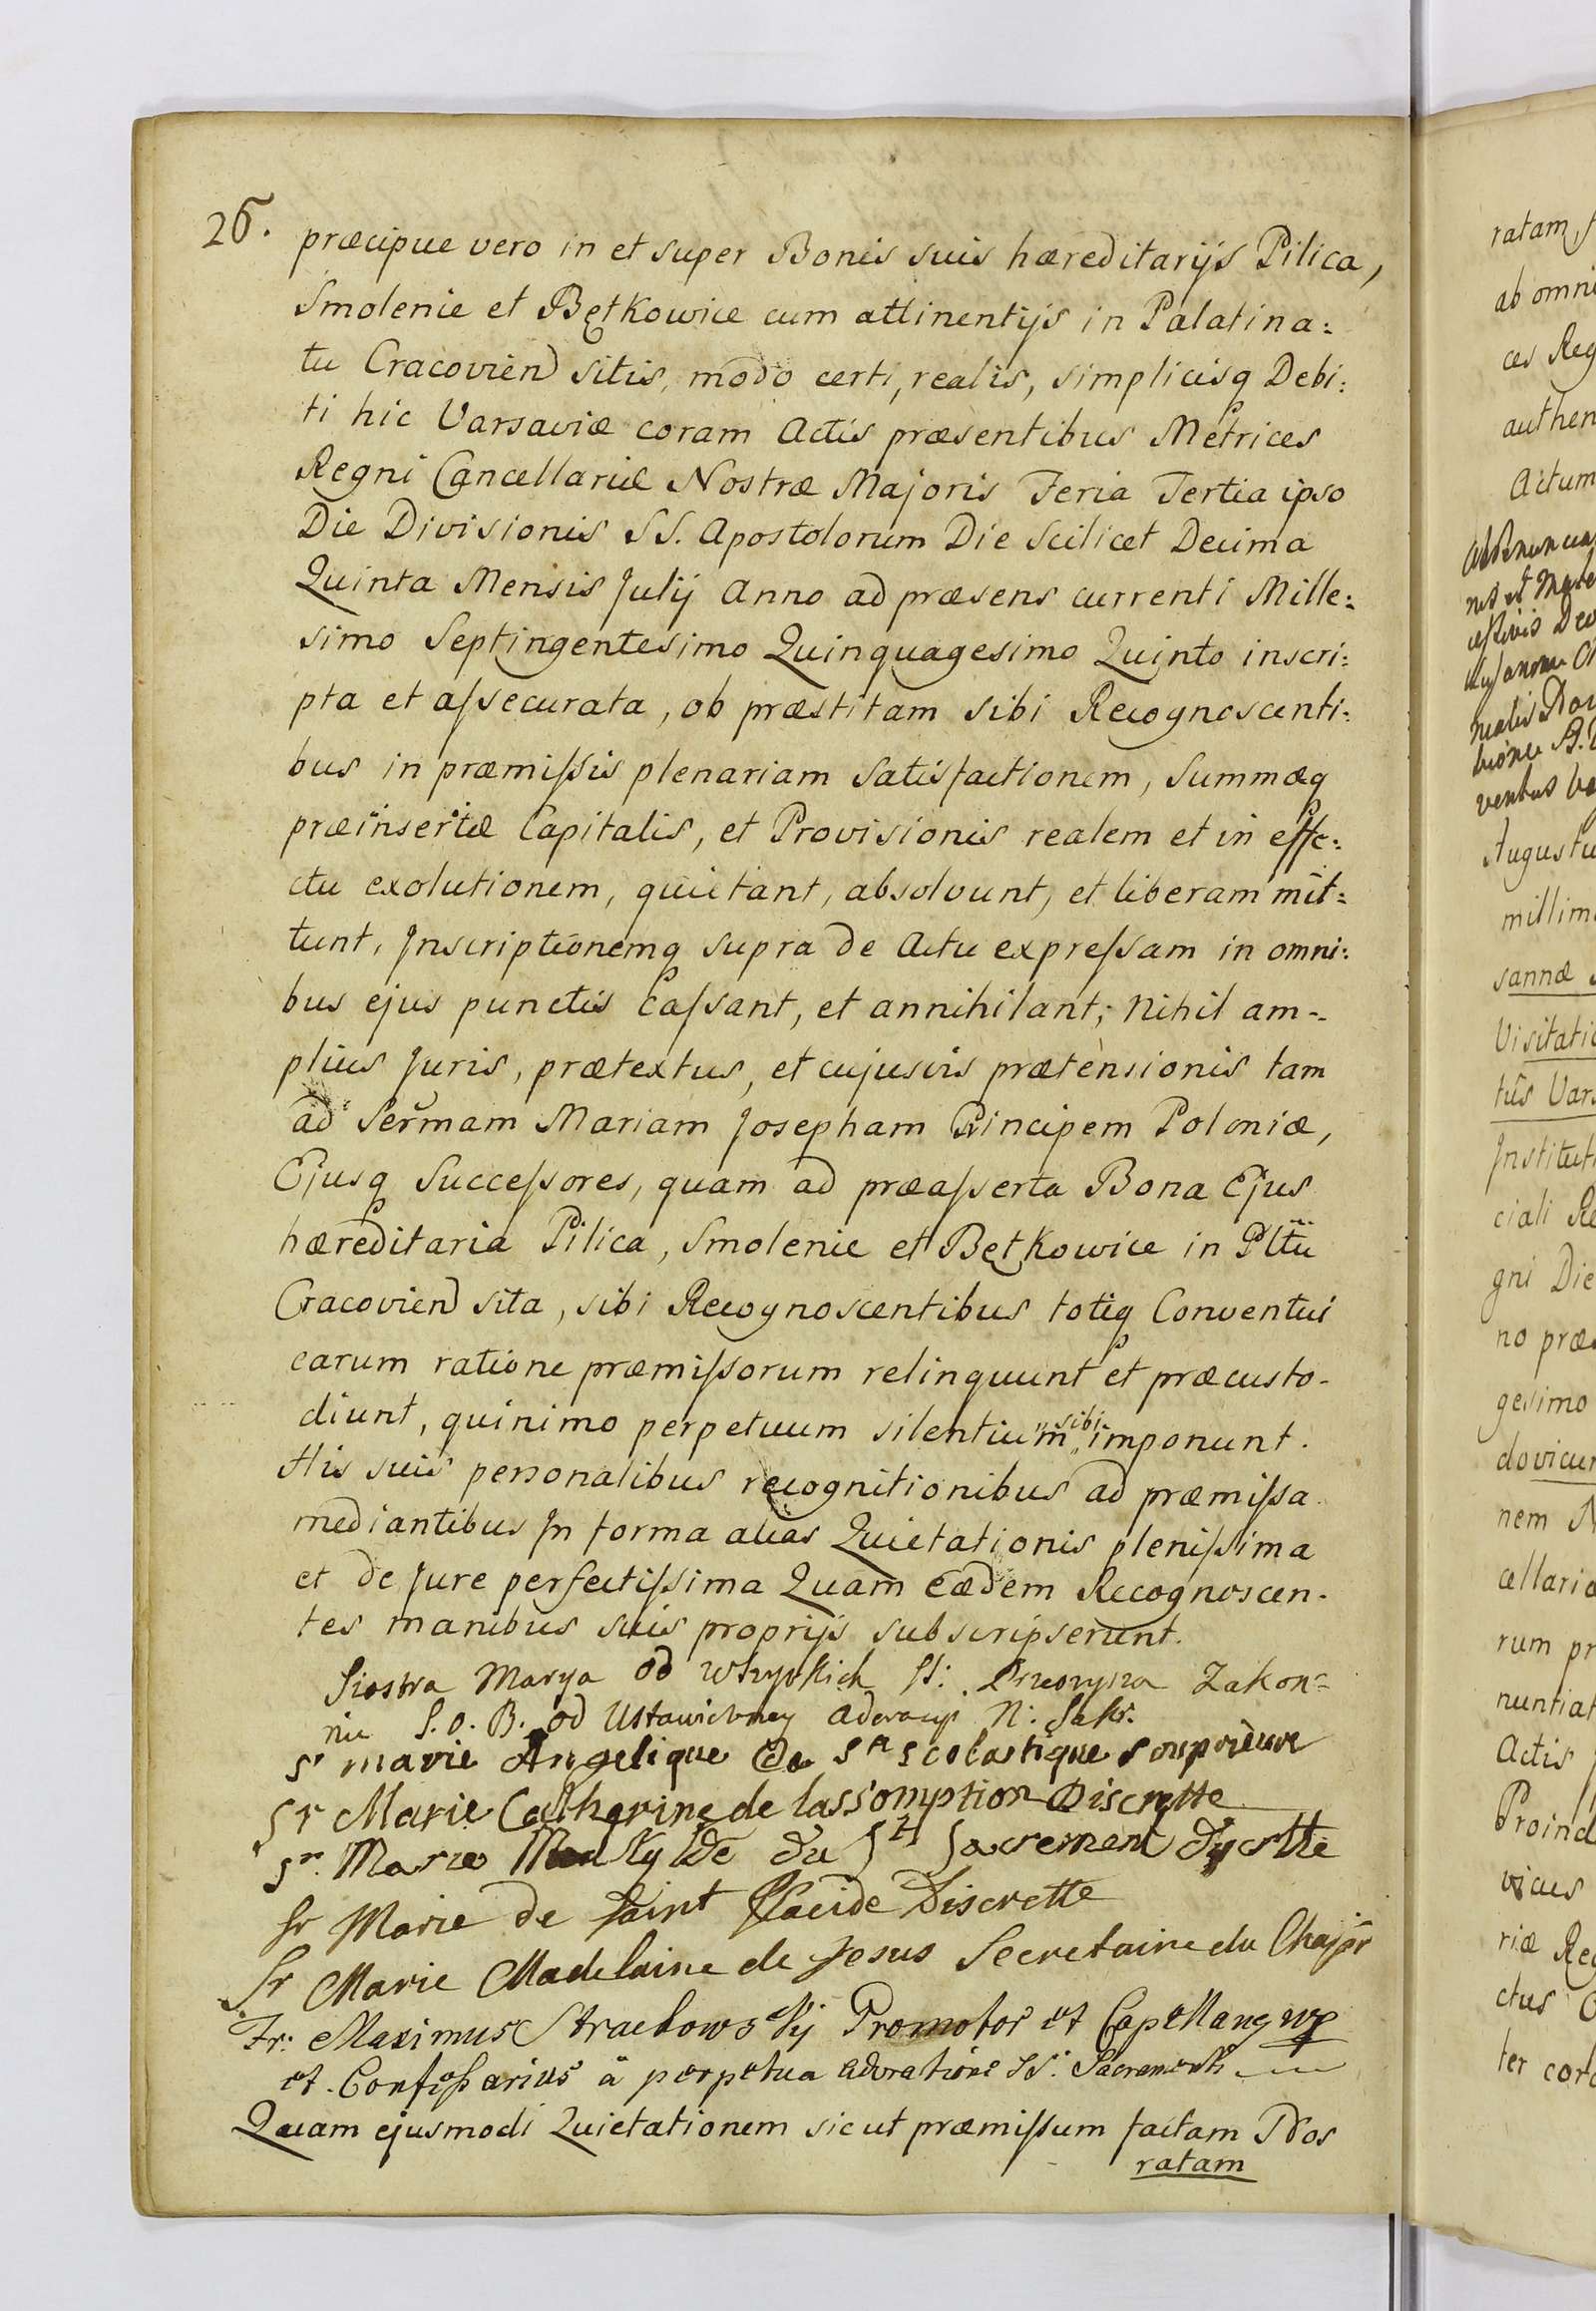 26.
præcipue vero in et super Bonis suis hæreditarijs Pilica,
Smolenie et Bętkowice cum attinentijs in Palatina:
tu Cracovien sitis, modo certi, realis, simplicisq Debi:
ti hic Varsaviæ coram Actis præsentibus Metrices
Regni Cancellariæ Nostræ Majoris Feria Tertia ipso
Die Divisionis SS. Apostolorum Die scilicet Decima
Quinta Mensis Julij Anno ad præsens currenti Mille:
simo Septingentesimo Quinquagesimo Quinto inscri:
pta et assecurata, ob præstitam sibi Recognoscenti:
bus in præmissis plenariam satisfactionem, Summæq
præinsertæ Capitalis, et Provisionis realem et in effe:
ctu exolutionem, quietant, absolvunt, et liberam mit:
tunt, Inscriptionemq supra de Actu expressam in omni:
bus ejus punctis cassant, et annihilant; Nihil am-
plius Juris, prætextus, et cujusvis prætensionis tam
ad Serm̃am Mariam Josepham Principem Poloniæ,
Ejusq Successores, quam ad præasserta Bona Ejus
hæreditaria Pilica, Smolenie et Bętkowice in Pltũ
Cracovien sita, sibi Recognoscentibus totiq Conventui
earum ratione præmissorum relinquunt et præcusto-
diunt, quinimo perpetuum silentium sibi imponunt.
His suis personalibus recognitionibus ad præmissa
mediantibus In forma alias Quietationis plenissima
et de Jure perfectissima Quam eædem Recognoscen-
tes manibus suis proprijs subscripserunt.
Siostra Marya od wszystkich SS: Przeorysza Zakon=
nic S. O. B. od Ustawiczney Adoracyi N: Sakr.
Sr marie Angelique de Ste Scolastique souprieure
Sr Marie Catherine de lassomption Discrette
Sr. Marie du St Sacrement
Sr Marie de Saint Placide Discrette
Sr Marie Madelaine de Jesus Secretaire du Chapr
Fr: Maximus Promotor et
et Confessarius â perpetua adoratione SS: Sacramenti
Quam ejusmodi Quietationem sicut præmissum factam Nos
ratam
ratam
ab omni
ces Reg
authen
Actum
Augustu
millim
sannæ
Visitatio
tus Vars
Institut
ciali Re
gni Die
no præs
gesimo
dovicum
nem N
cellaria
rum pr
nuntiat
Actis
Proind
vicus
riæ Reg
ctus